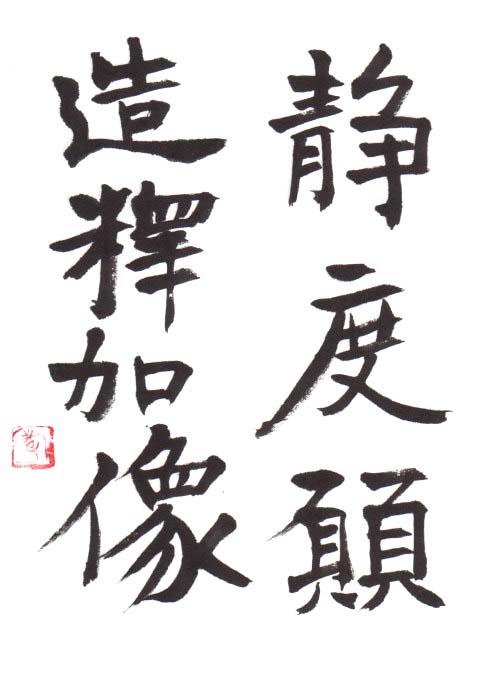 静度願
造釋加像